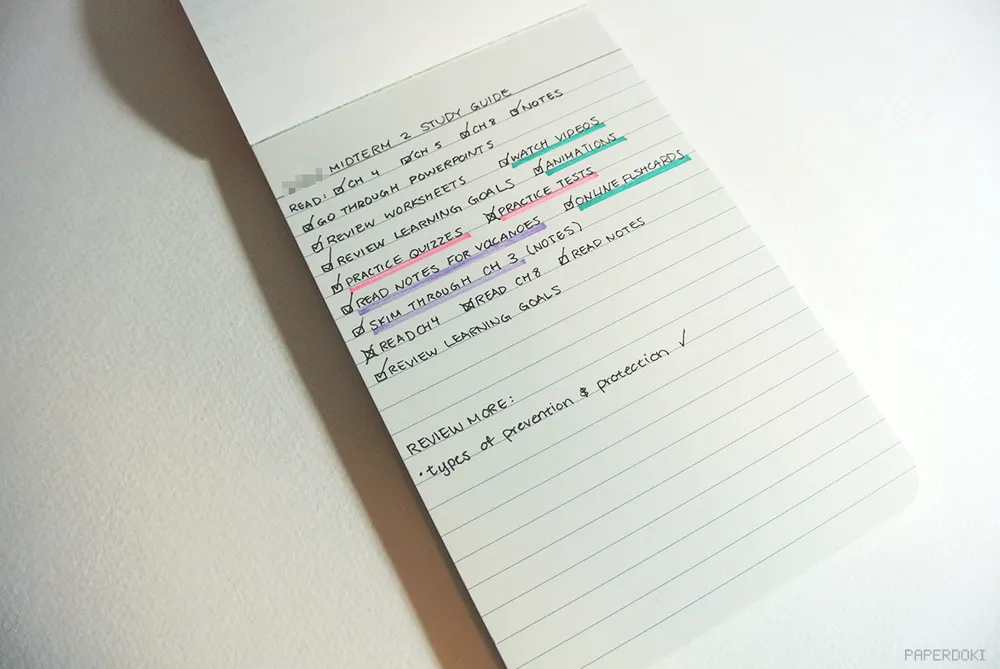 MIDTERM 2 STUDY GUIDE
READ: ☑ CH 4 ☑ CH 5 ☑ CH 8 ☑ NOTES
☑ GO THROUGH POWERPOINTS ☑ WATCH VIDEOS
☑ REVIEW WORKSHEETS ☑ ANIMATIONS
☑ REVIEW LEARNING GOALS ☒ PRACTICE TESTS ☑ ONLINE FLSHCARDS
☑ PRACTICE QUIZZES
☑ READ NOTES FOR VOCANOES
☑ SKIM THROUGH CH 3 (NOTES)
☒ READ CH4 ☒ READ CH8 ☑ READ NOTES
☑ REVIEW LEARNING GOALS
REVIEW MORE:
• types of prevention & protection ✓
PAPERDOKI